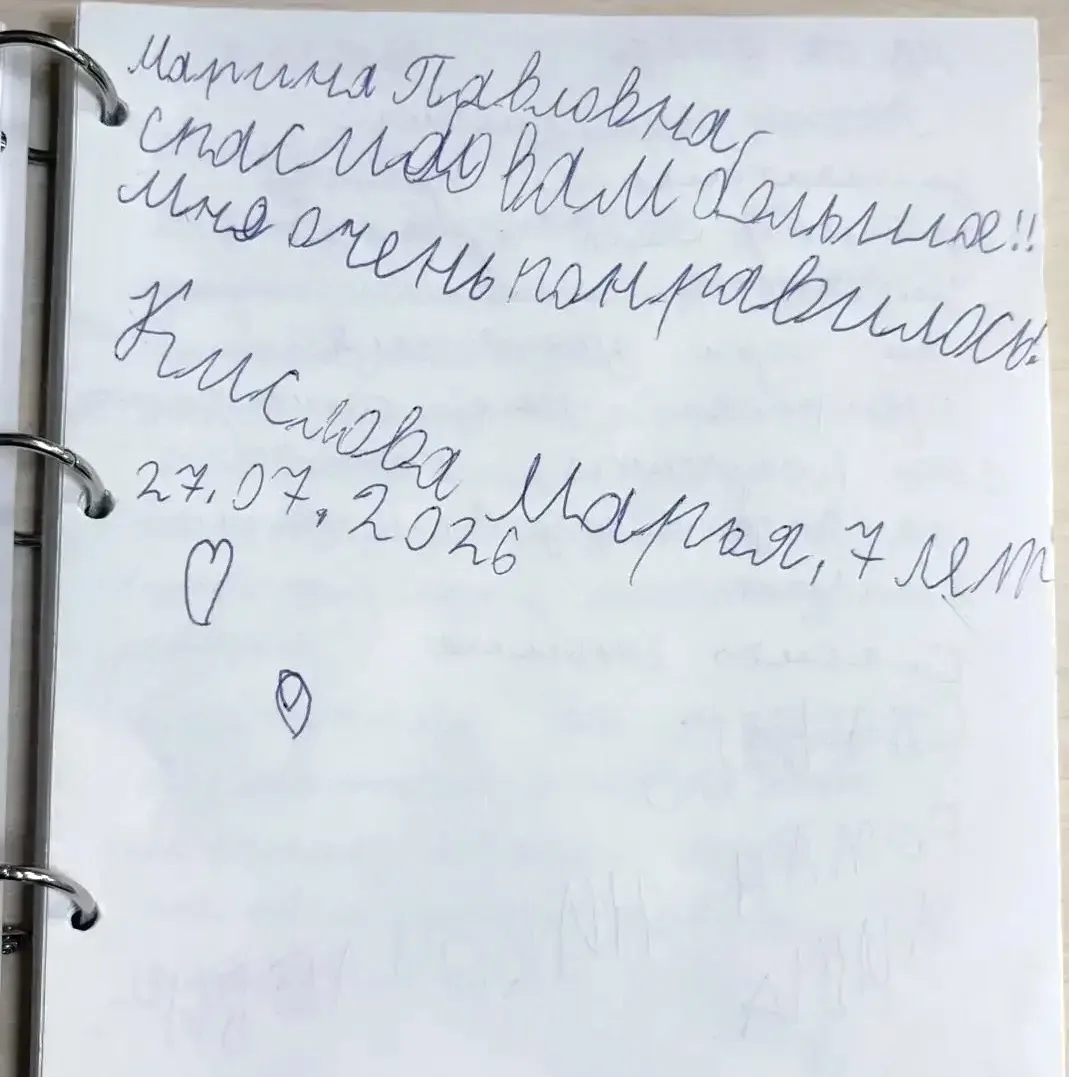 Марина Павловна,
спасибо вам большое!!
Мне очень понравилось!
Кислова Марья, 7 лет
27.07.2026